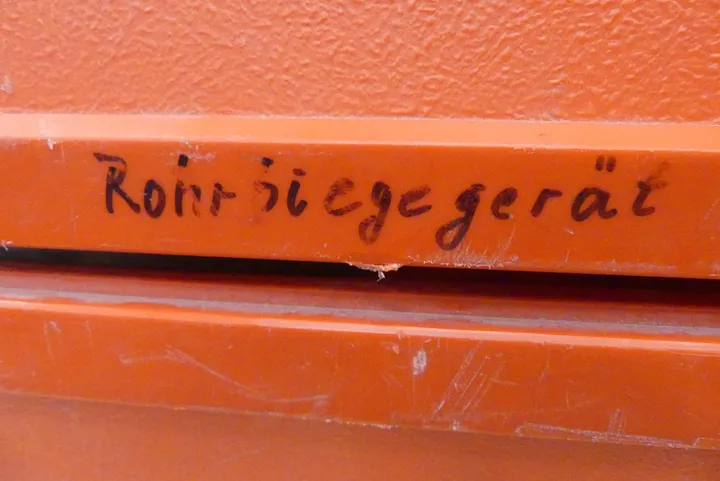 Rohrbiegegerät